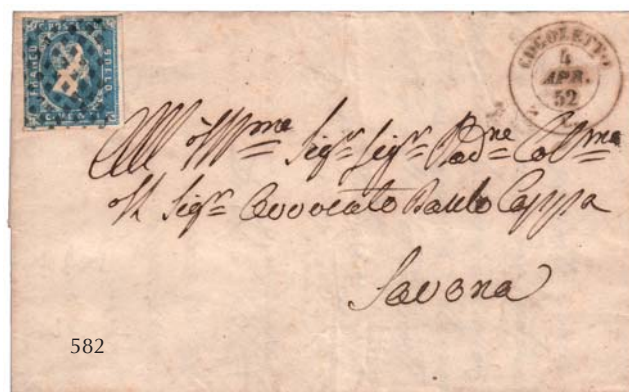 FRANCO
BOLLO
COGOLETTO
4
APR.
52
All' Illmo Sigr Sigr Padne Colmo
Il Sigr Avvocato Paolo Cappa
Savona
582